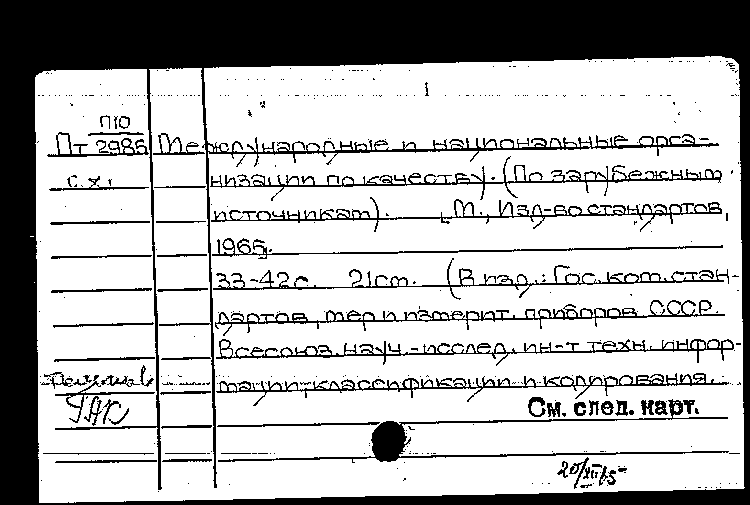 1
П10
Пт 2985 Международные и национальные орга-
с.х. низации по качеству. (По зарубежным
источникам). М., Изд-во стандартов,
1965.
33-42с. 21см. (В изд.: Гос. ком. стан-
дартов, мер и измерит. приборов СССР.
Всесоюз. науч.-исслед. ин-т техн. инфор-
мации, классификации и кодирования.
ГАК
См. след. карт.
20/XII 65